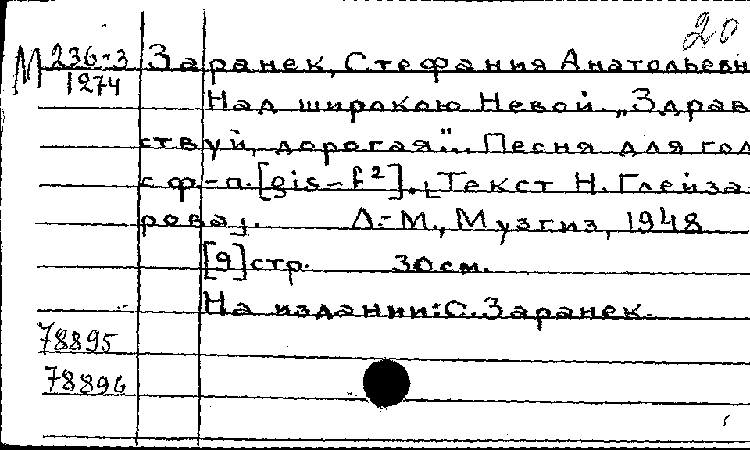 20
М 236-3 Заранек, Стефания Анатольевн
1274
Над широкою Невой. „Здрав
ствуй, дорогая"... Песня для гол
с ф-п. [gis-f²]. [Текст Н. Глейза
рова].   Л.-М., Музгиз, 1948
[9] стр.   30 см.
На издании: С. Заранек.
78895
78896